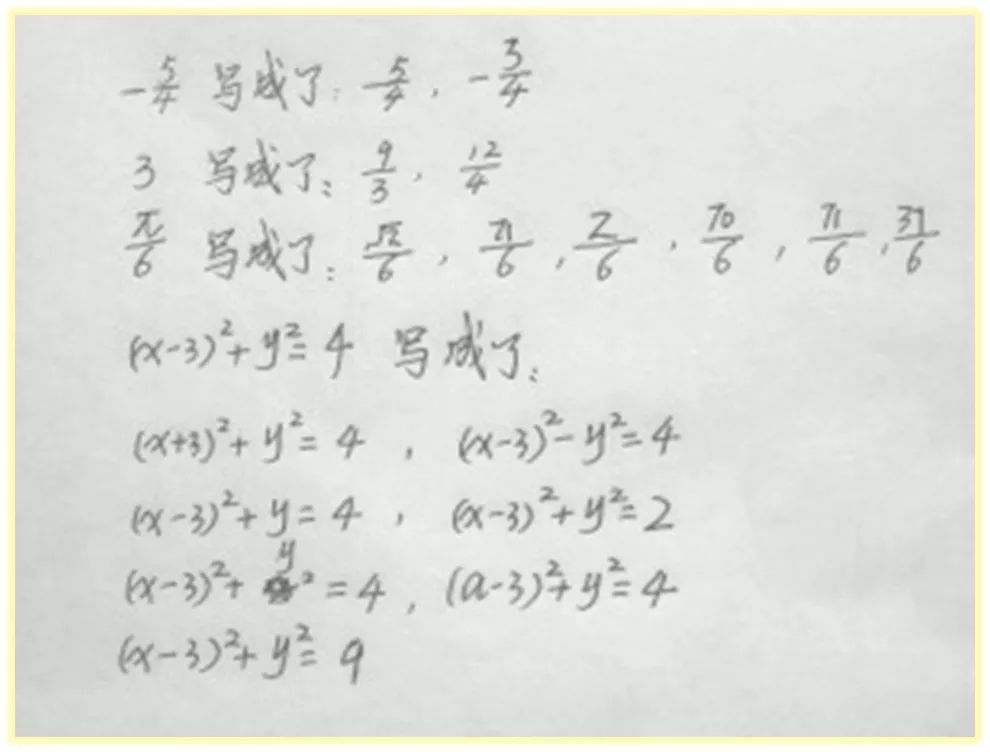 -5/4 写成了: -5/4, -3/4
3 写成了: 9/3, 12/4
π/6 写成了: √2/6, 71/6, 2/6, 70/6, 71/6, 37/6
(x-3)²+y²=4 写成了:
(x+3)²+y²=4, (x-3)²-y²=4
(x-3)²+y=4, (x-3)²+y²=2
(x-3)²+y²=4, (a-3)²+y²=4
(x-3)²+y²=9